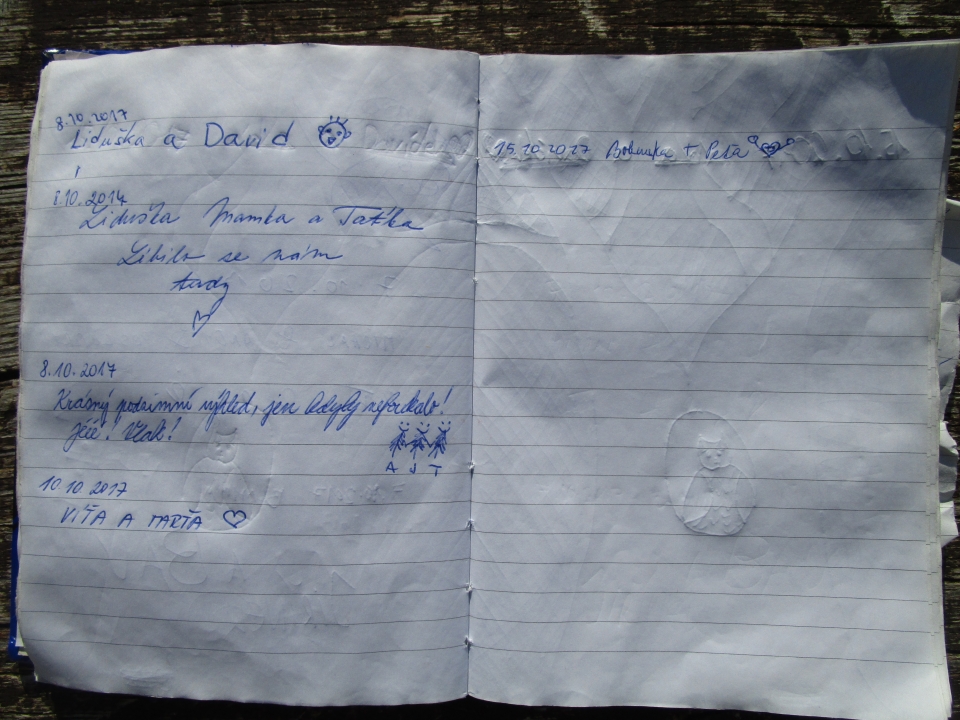 8.10.2017
Liduška a David
8.10.2014
Liduška Mamka a Taťka
Líbilo se nám
tady
8.10.2017
Krásný podzimní výhled, jen kdyby nefoukalo!
Jéé! Vlak!
A J T
10.10.2017
VÍŤA A MARŤA
15.10.2017 + Peťa